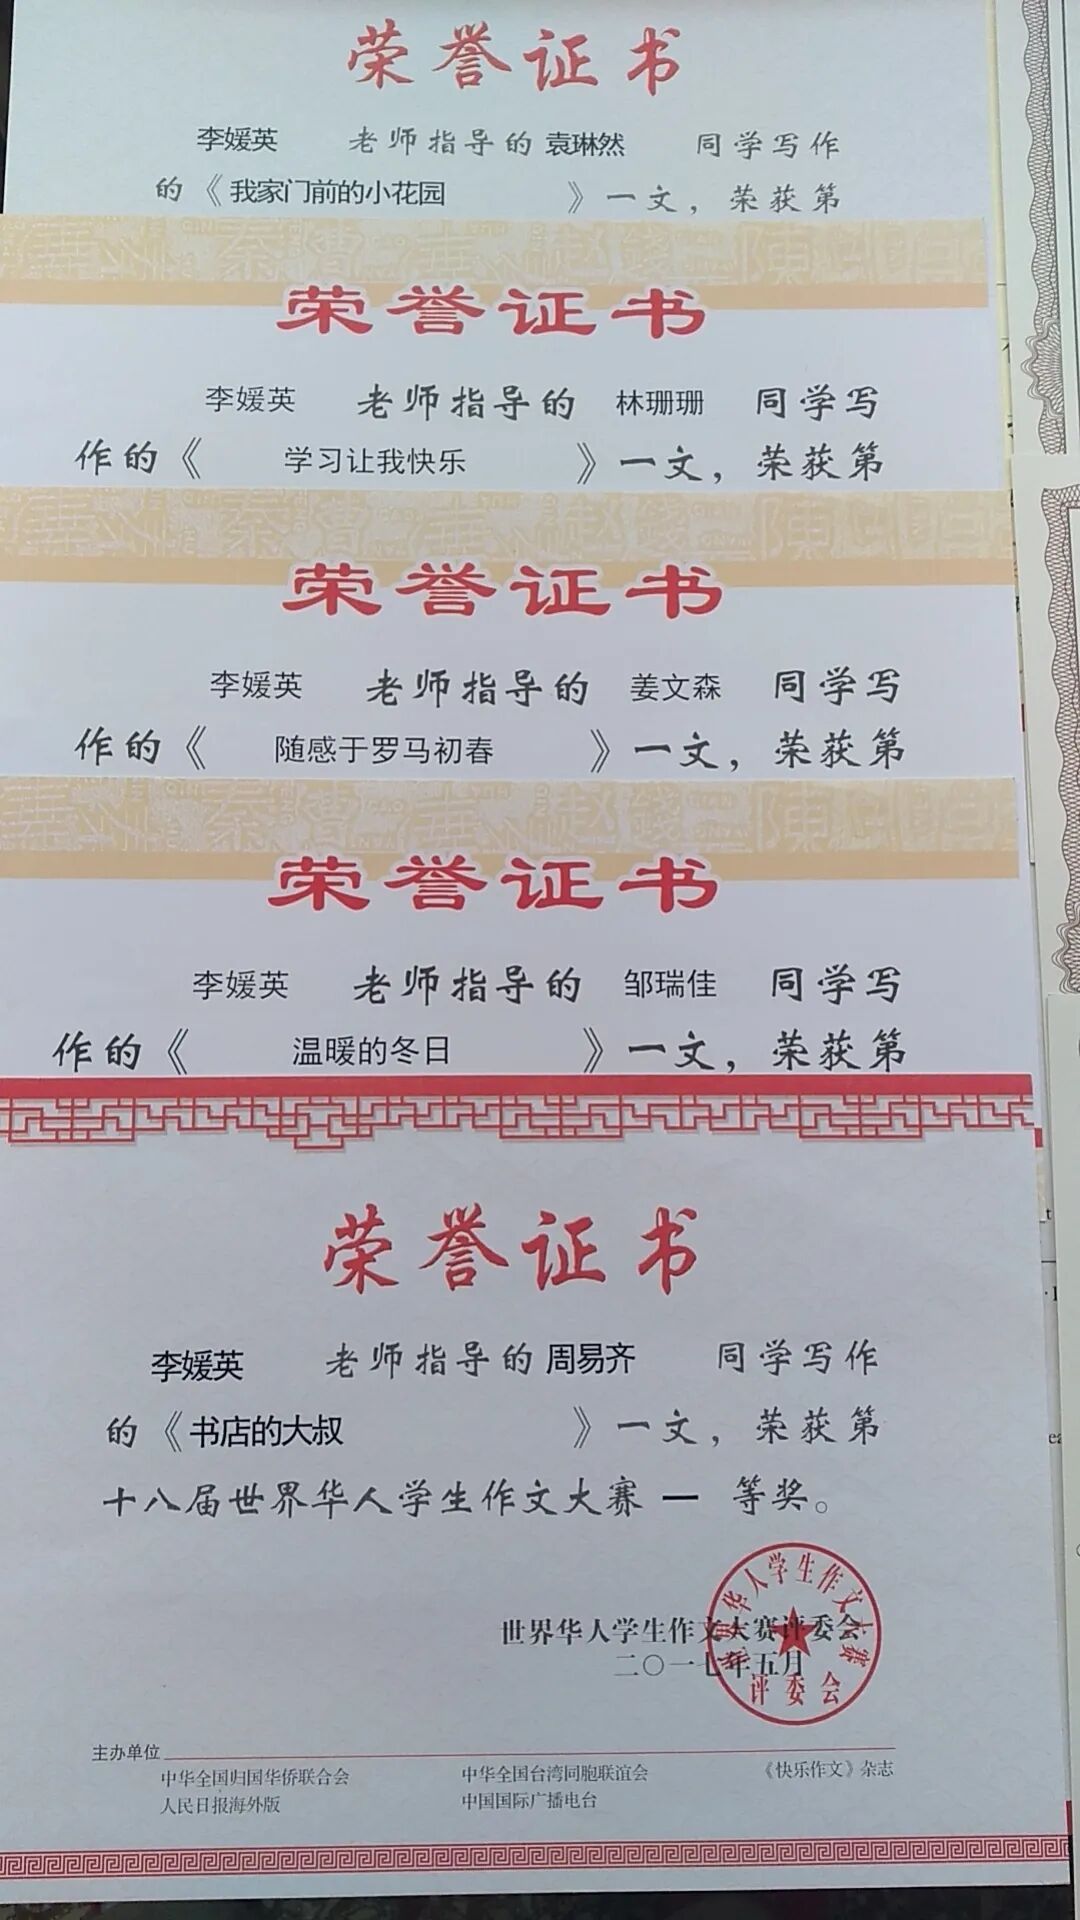 荣誉证书
李媛英 老师指导的 袁琳然 同学写作
的《我家门前的小花园》一文，荣获第
荣誉证书
李媛英 老师指导的 林珊珊 同学写
作的《学习让我快乐》一文，荣获第
荣誉证书
李媛英 老师指导的 姜文森 同学写
作的《随感于罗马初春》一文，荣获第
荣誉证书
李媛英 老师指导的 邹瑞佳 同学写
作的《温暖的冬日》一文，荣获第
荣誉证书
李媛英 老师指导的 周易齐 同学写作
的《书店的大叔》一文，荣获第
十八届世界华人学生作文大赛 一 等奖。
世界华人学生作文大赛评委会
二〇一七年五月
世界华人学生作文大赛
评委会
主办单位
中华全国归国华侨联合会 中华全国台湾同胞联谊会 《快乐作文》杂志
人民日报海外版 中国国际广播电台